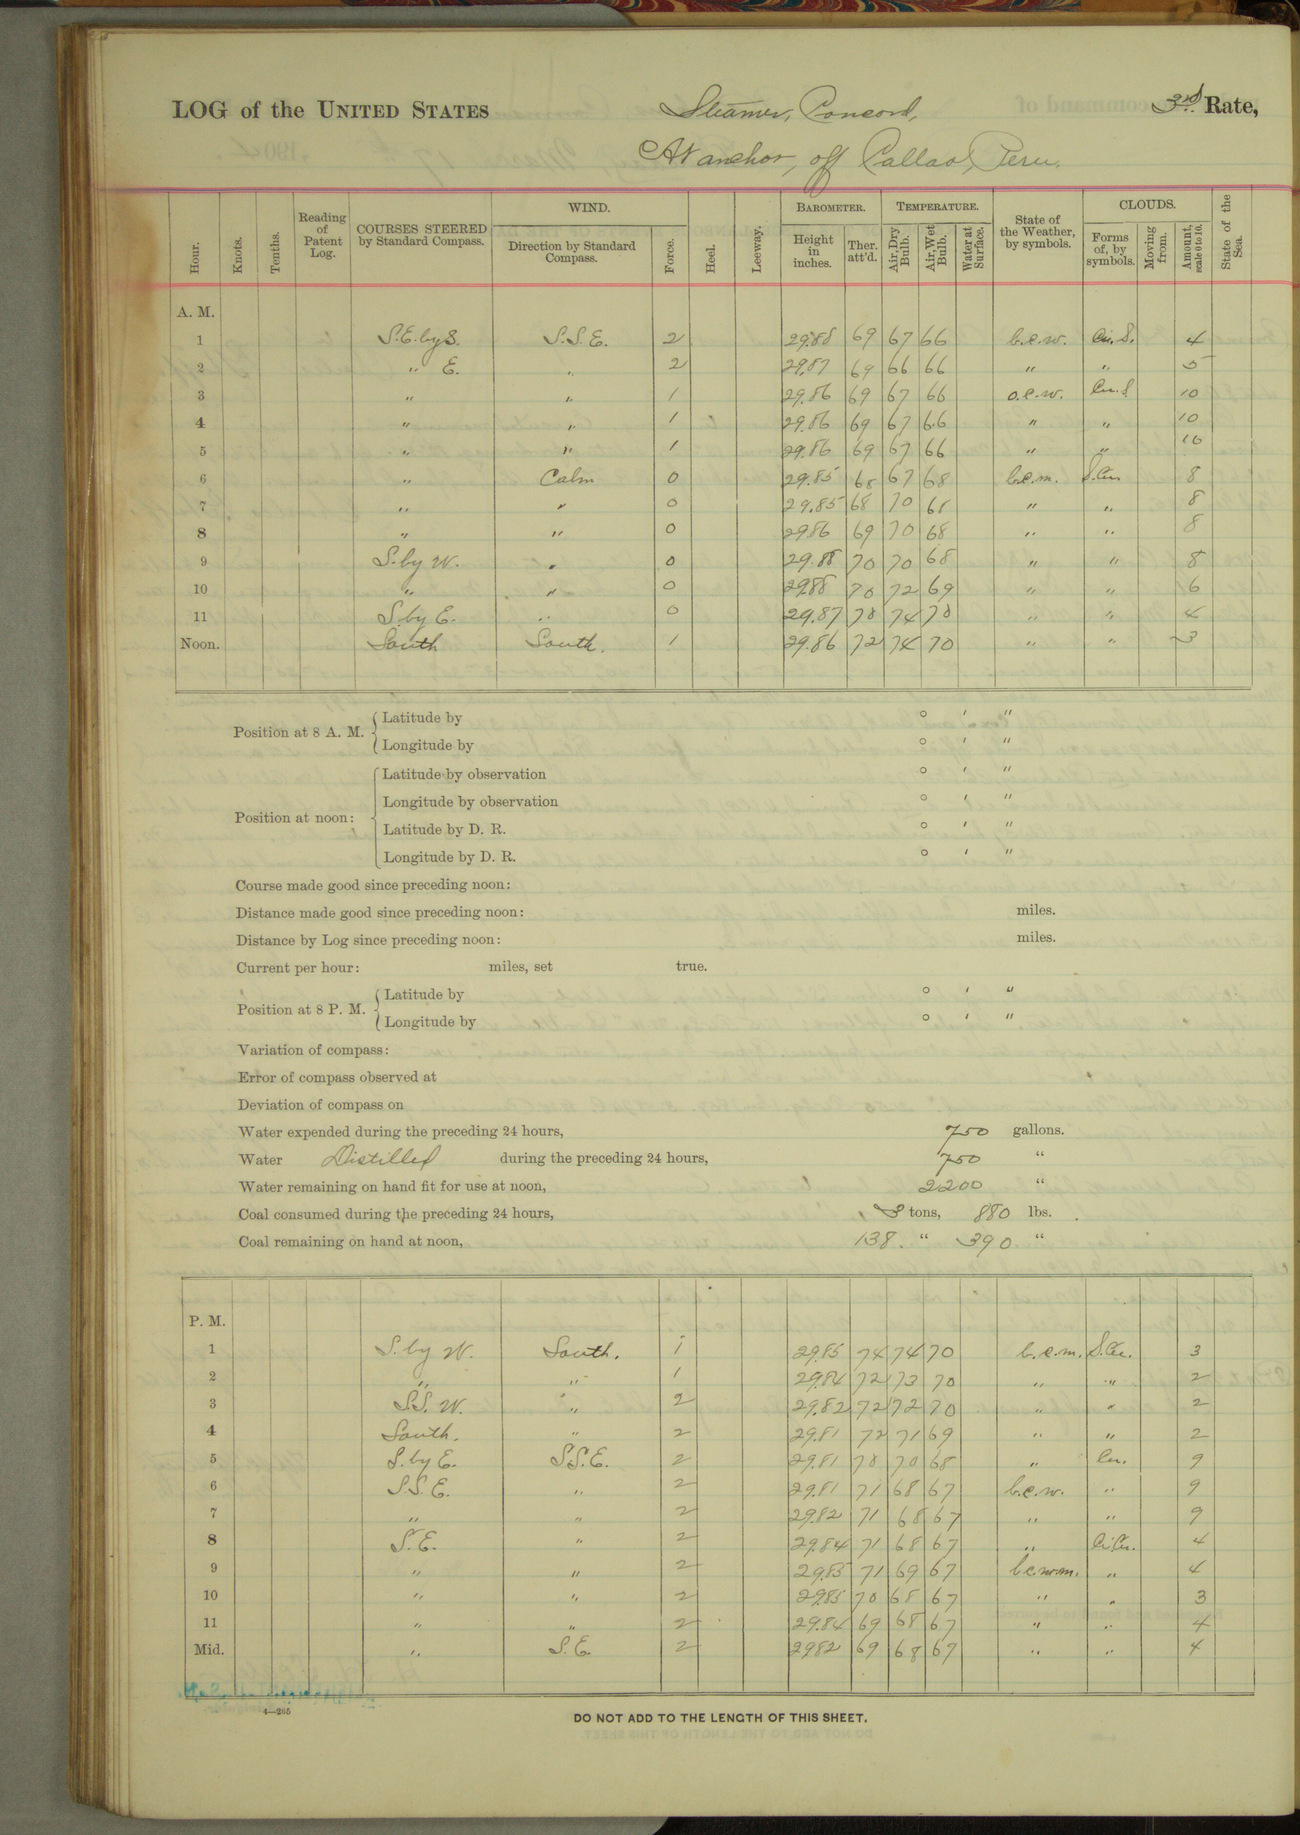 LOG of the UNITED STATES Steamer, Concord, 3rd Rate,
At anchor, off Callao, Peru.
Hour. Knots. Tenths. Reading of Patent Log. COURSES STEERED by Standard Compass. WIND. Direction by Standard Compass. Force. Heel. Leeway. BAROMETER. Height in inches. Ther. att'd. TEMPERATURE. Air, Dry Bulb. Air, Wet Bulb. Water at Surface. State of the Weather, by symbols. CLOUDS. Forms of, by symbols. Moving from. Amount, scale 0 to 10. State of the Sea.
A. M.
1 S.E. by S. S.S.E. 2 29.88 69 67 66 b.c.w. Cu.S. 4
2 " E. " 2 29.87 69 66 66 " " 5
3 " " 1 29.86 69 67 66 o.c.w. Cu.S. 10
4 " " 1 29.86 69 67 66 " " 10
5 " " 1 29.86 69 67 66 " " 10
6 " Calm 0 29.85 68 67 68 b.c.m. S.Cu. 8
7 " " 0 29.85 68 70 68 " " 8
8 " " 0 29.86 69 70 68 " " 8
9 S. by W. " 0 29.88 70 70 68 " " 8
10 " " 0 29.88 70 72 69 " " 6
11 S. by E. " 0 29.87 70 74 70 " " 4
Noon. South South. 1 29.86 72 74 70 " " 3
Position at 8 A. M. Latitude by ° ′ ″
Longitude by ° ′ ″
Position at noon: Latitude by observation ° ′ ″
Longitude by observation ° ′ ″
Latitude by D. R. ° ′ ″
Longitude by D. R. ° ′ ″
Course made good since preceding noon:
Distance made good since preceding noon: miles.
Distance by Log since preceding noon: miles.
Current per hour: miles, set true.
Position at 8 P. M. Latitude by ° ′ ″
Longitude by ° ′ ″
Variation of compass:
Error of compass observed at
Deviation of compass on
Water expended during the preceding 24 hours, 750 gallons.
Water Distilled during the preceding 24 hours, 750 "
Water remaining on hand fit for use at noon, 2200 "
Coal consumed during the preceding 24 hours, 3 tons, 880 lbs.
Coal remaining on hand at noon, 138. " 390 "
P. M.
1 S. by W. South. 1 29.85 74 74 70 b.c.m. S.Cu. 3
2 " " 1 29.84 72 73 70 " " 2
3 S.S.W. " 2 29.82 72 72 70 " " 2
4 South. " 2 29.81 72 71 69 " " 2
5 S. by E. S.S.E. 2 29.81 70 70 68 " Cu. 9
6 S.S.E. " 2 29.81 71 68 67 b.c.w. " 9
7 " " 2 29.82 71 68 67 " " 9
8 S.E. " 2 29.84 71 68 67 " Ci.Cu. 4
9 " " 2 29.85 71 69 67 b.c.w.m. " 4
10 " " 2 29.85 70 68 67 " " 3
11 " " 2 29.84 69 68 67 " " 4
Mid. " S.E. 2 29.82 69 68 67 " " 4
4—265
DO NOT ADD TO THE LENGTH OF THIS SHEET.